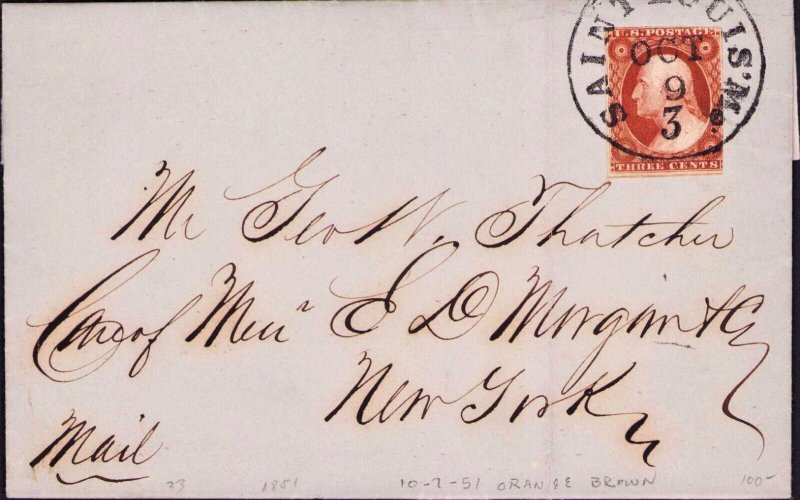 SAINT LOUIS' Mo.
U.S. POSTAGE
OCT
9
3
THREE CENTS
Mr Geo W. Thatcher
Care of Messrs E D Morgan & Co
New York
Mail
33 1851 10-7-51 ORANGE BROWN 100-